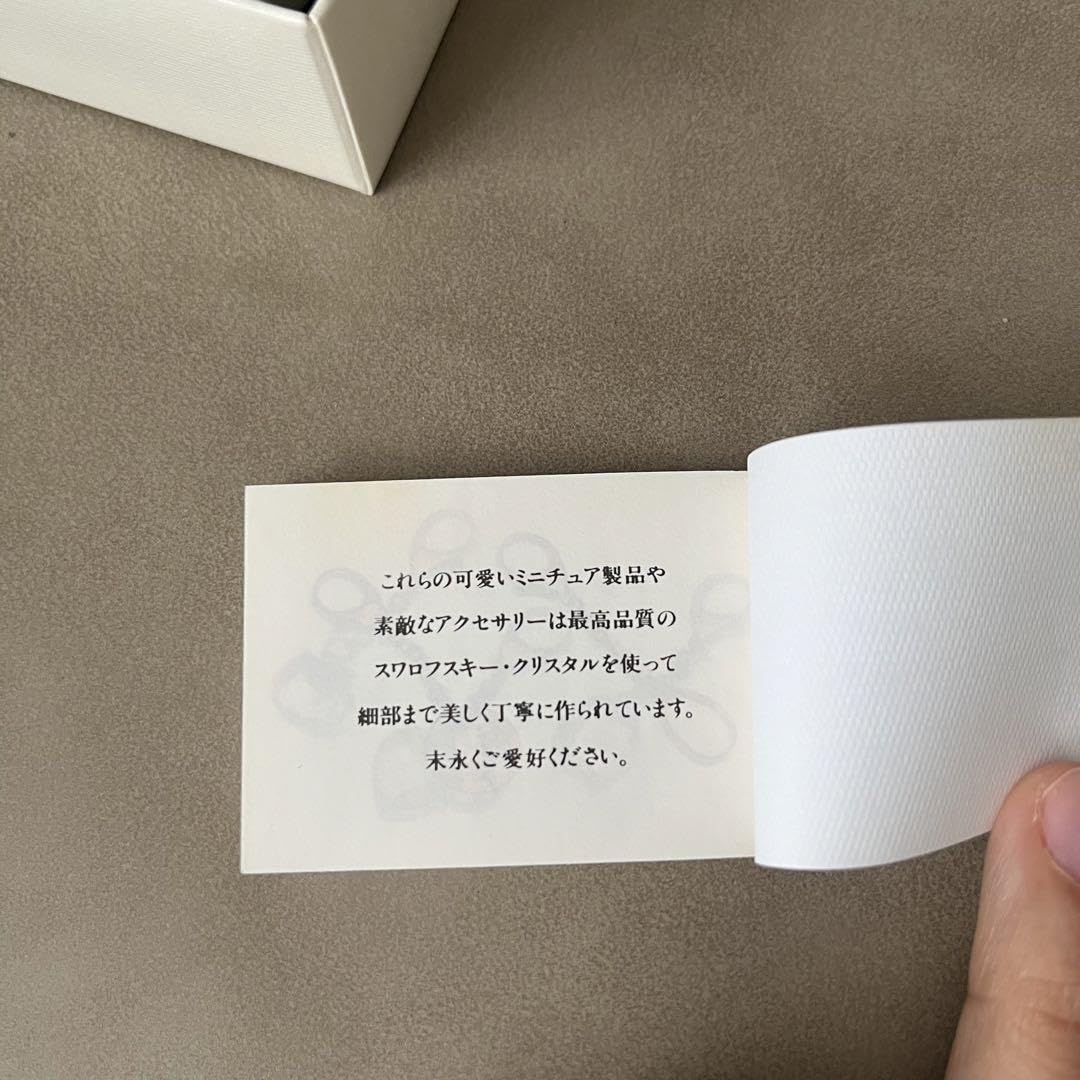 これらの可愛いミニチュア製品や
素敵なアクセサリーは最高品質の
スワロフスキー・クリスタルを使って
細部まで美しく丁寧に作られています。
末永くご愛好ください。